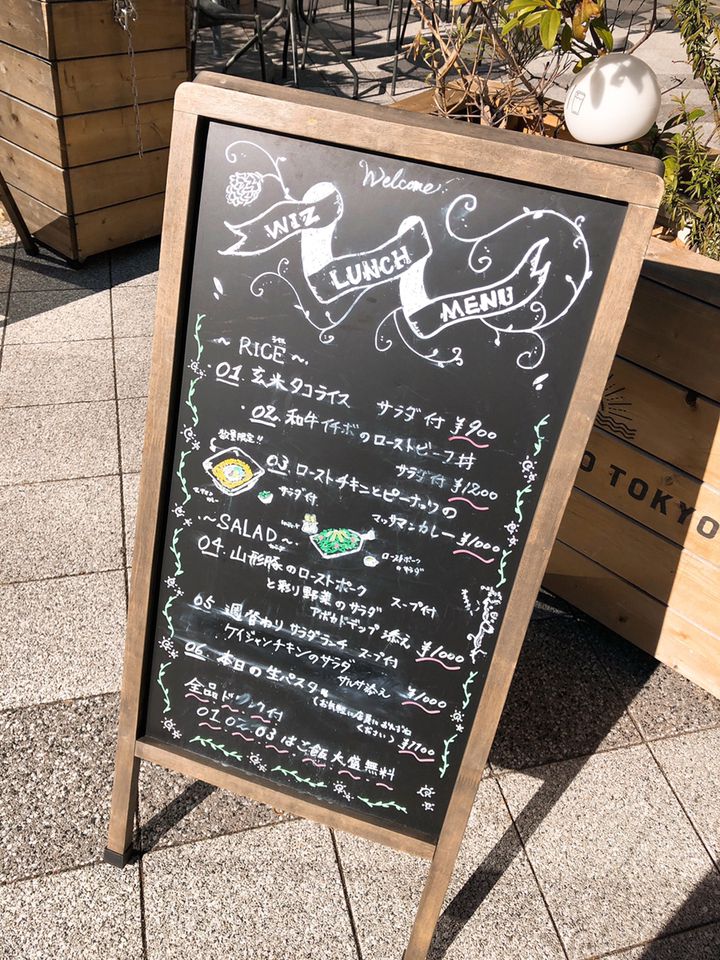 Welcome
WIZ
LUNCH
MENU
~ RICE ~
01. 玄米タコライス
サラダ付 ¥900
02. 和牛イチボのローストビーフ丼
サラダ付 ¥1200
数量限定!!
03. ローストチキンとピーナッツの
マッサマンカレー ¥1000
サラダ付
~SALAD~
ローストポーク
のサラダ
04. 山形豚のローストポーク
と彩り野菜のサラダ スープ付
アボカドディップ添え ¥1000
05 週替わり サラダランチ スープ付
ケイジャンチキンのサラダ
サルサ添え ¥1000
06. 本日の生パスタ
(お気軽に店員におたずね
ください) ¥1100
全品ドリンク付
01.02.03はご飯大盛無料
O TOKYO